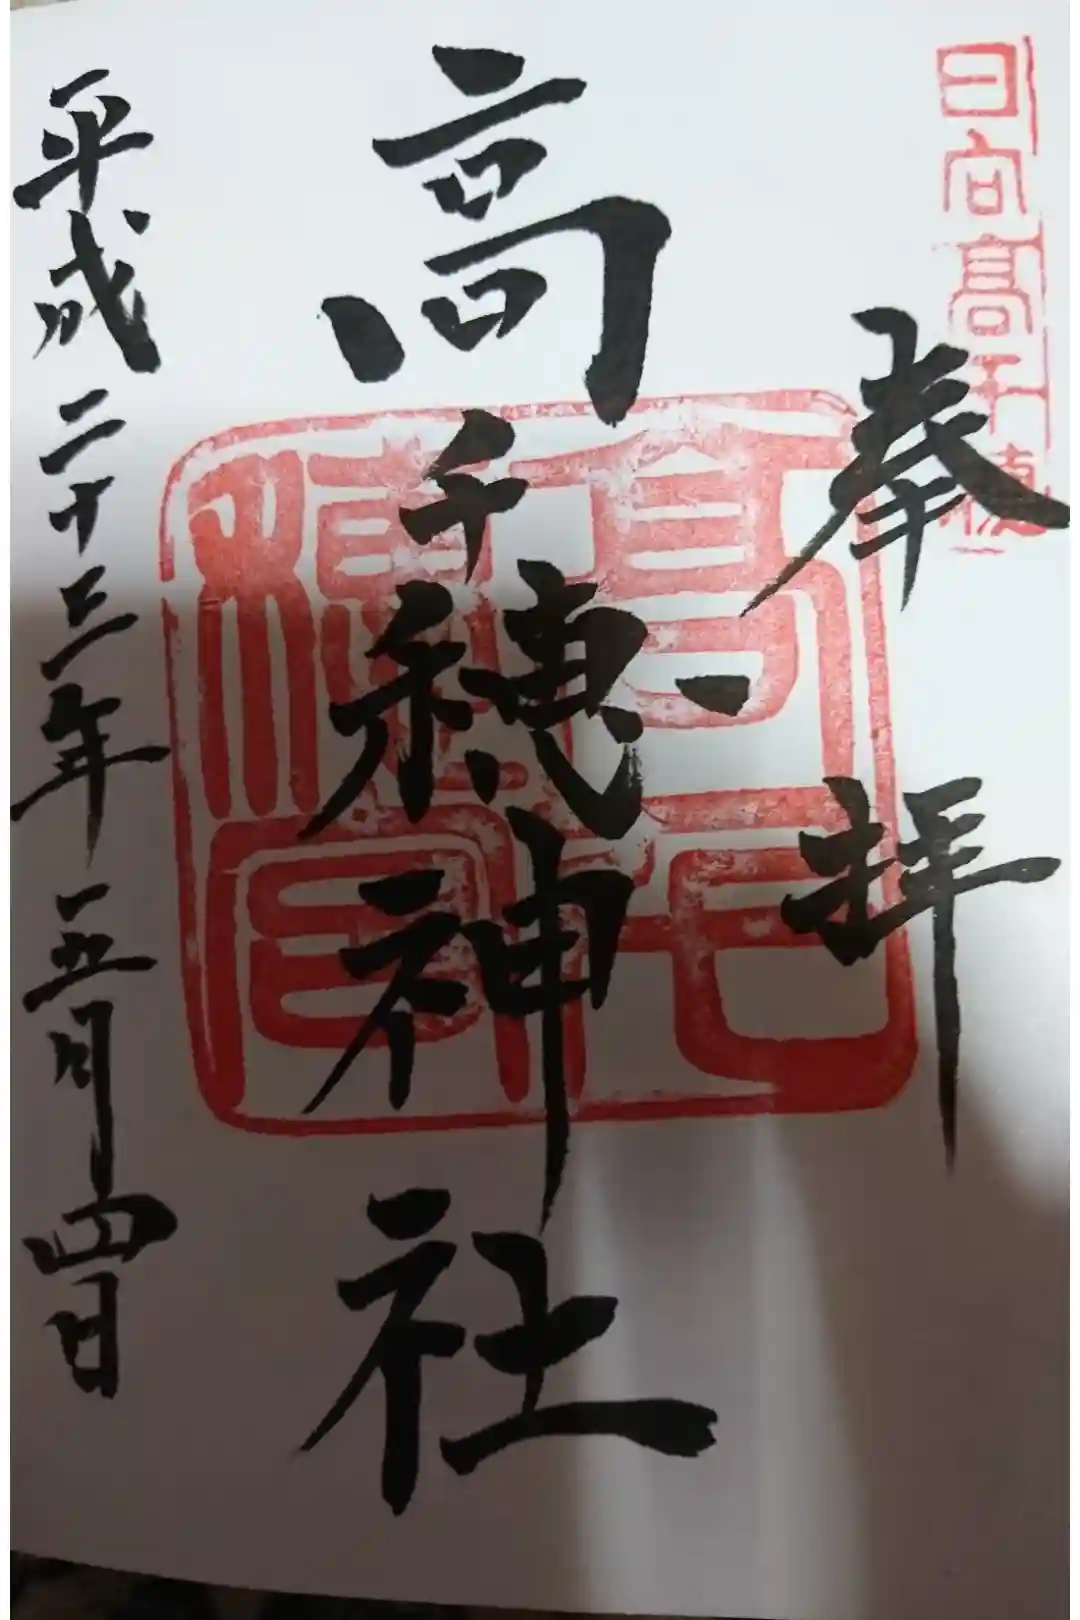 日向高千穂
奉拝
高千穂神社
高千穂宮
平成二十三年五月四日